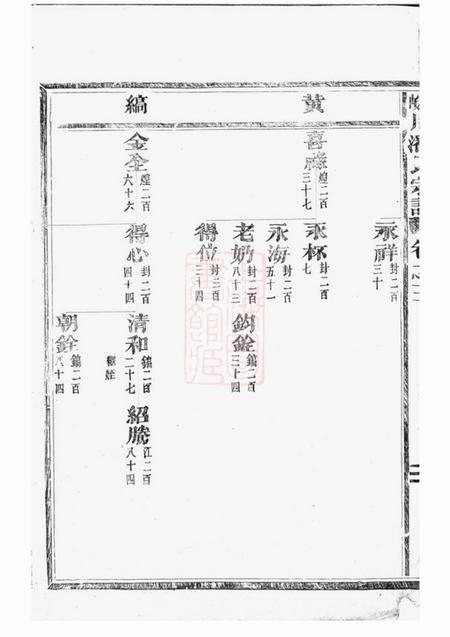 黄
喜祿
煌二百
三十七
永祥
封二百
三十
永杯
封二百
七
永海
封二百
五十一
老奶
封二百
八十三
鈞銓
鎬二百
三十四
得位
封二百
三十四
縞
金全
煌二百
六十六
得心
封二百
四十四
清和
鎬二百
二十七
紹騰
江二百
八十四
朝銓
鎬二百
八十四